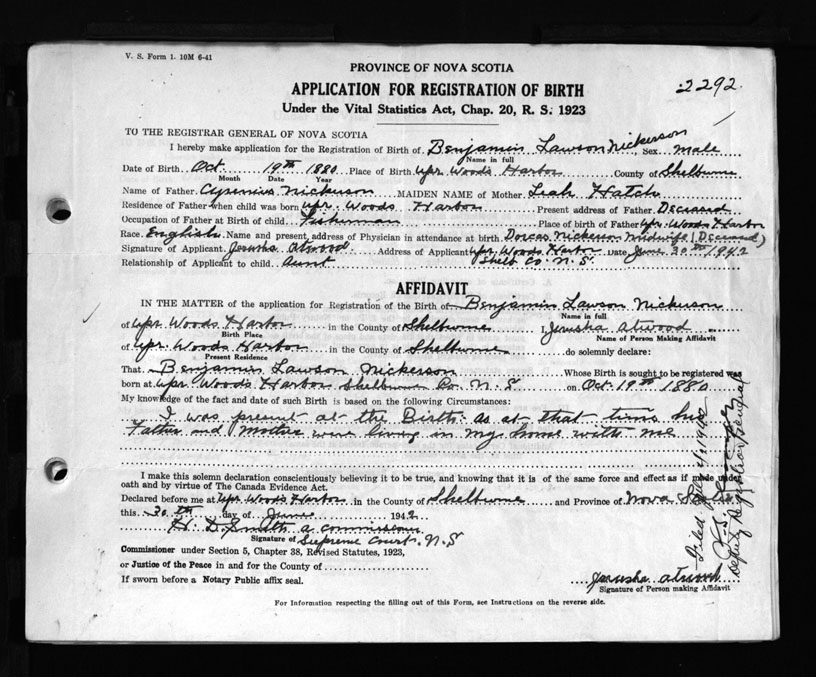 V. S. Form 1. 10M 6-41
PROVINCE OF NOVA SCOTIA
2292
APPLICATION FOR REGISTRATION OF BIRTH
Under the Vital Statistics Act, Chap. 20, R. S. 1923
TO THE REGISTRAR GENERAL OF NOVA SCOTIA
I hereby make application for the Registration of Birth of Benjamin Lawson Nickerson, Sex male
Name in full
Date of Birth Oct 19th 1880 Place of Birth Upr. Woods Harbor County of Shelburne
Month Date Year
Name of Father Nickerson MAIDEN NAME of Mother Leah Hatch
Residence of Father when child was born Upr. Woods Harbor Present address of Father Deceased
Occupation of Father at Birth of child Fisherman Place of birth of Father Upr. Woods Harbor
Race English Name and present address of Physician in attendance at birth Dorcas Nickerson Midwife (Deceased)
Signature of Applicant Jerusha Atwood Address of Applicant Upr. Woods Harbor Date June 30th 1942
Relationship of Applicant to child Aunt Shelb Co. N. S.
AFFIDAVIT
IN THE MATTER of the application for Registration of the Birth of Benjamin Lawson Nickerson
Name in full
of Upr. Woods Harbor in the County of Shelburne I, Jerusha Atwood
Birth Place Name of Person Making Affidavit
of Upr. Woods Harbor in the County of Shelburne do solemnly declare:
Present Residence
That Benjamin Lawson Nickerson Whose Birth is sought to be registered was
born at Upr. Woods Harbor Shelburne Co. N. S on Oct. 19th 1880
My knowledge of the fact and date of such Birth is based on the following Circumstances:
I was present at the Birth as at that time his
Father and Mother were living in my home with me
I make this solemn declaration conscientiously believing it to be true, and knowing that it is of the same force and effect as if made under
oath and by virtue of The Canada Evidence Act.
Declared before me at Upr. Woods Harbor in the County of Shelburne and Province of Nova
this 30th day of June 1942
H. D. Smith a commissioner
Signature of Supreme Court N. S
Commissioner under Section 5, Chapter 38, Revised Statutes, 1923,
or Justice of the Peace in and for the County of
If sworn before a Notary Public affix seal.
Jerusha Atwood
Signature of Person making Affidavit
For Information respecting the filling out of this Form, see Instructions on the reverse side.
Filed
Deputy Registrar General